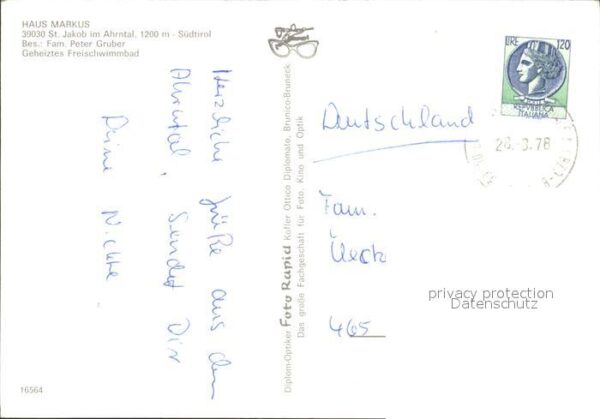 HAUS MARKUS
39030 St. Jakob im Ahrntal, 1200 m - Südtirol
Bes.: Fam. Peter Gruber
Geheiztes Freischwimmbad
Herzliche Grüße aus dem
Ahrntal, sendet Dir
Deine Nichte
Diplom-Optiker Foto Rapid Kofler Ottico Diplomato, Brunico-Bruneck
Das große Fachgeschäft für Foto, Kino und Optik
LIRE 120
REPUBBLICA
ITALIANA
20.-3.78
Deutschland
Fam.
Ueck
465
privacy protection
Datenschutz
16564